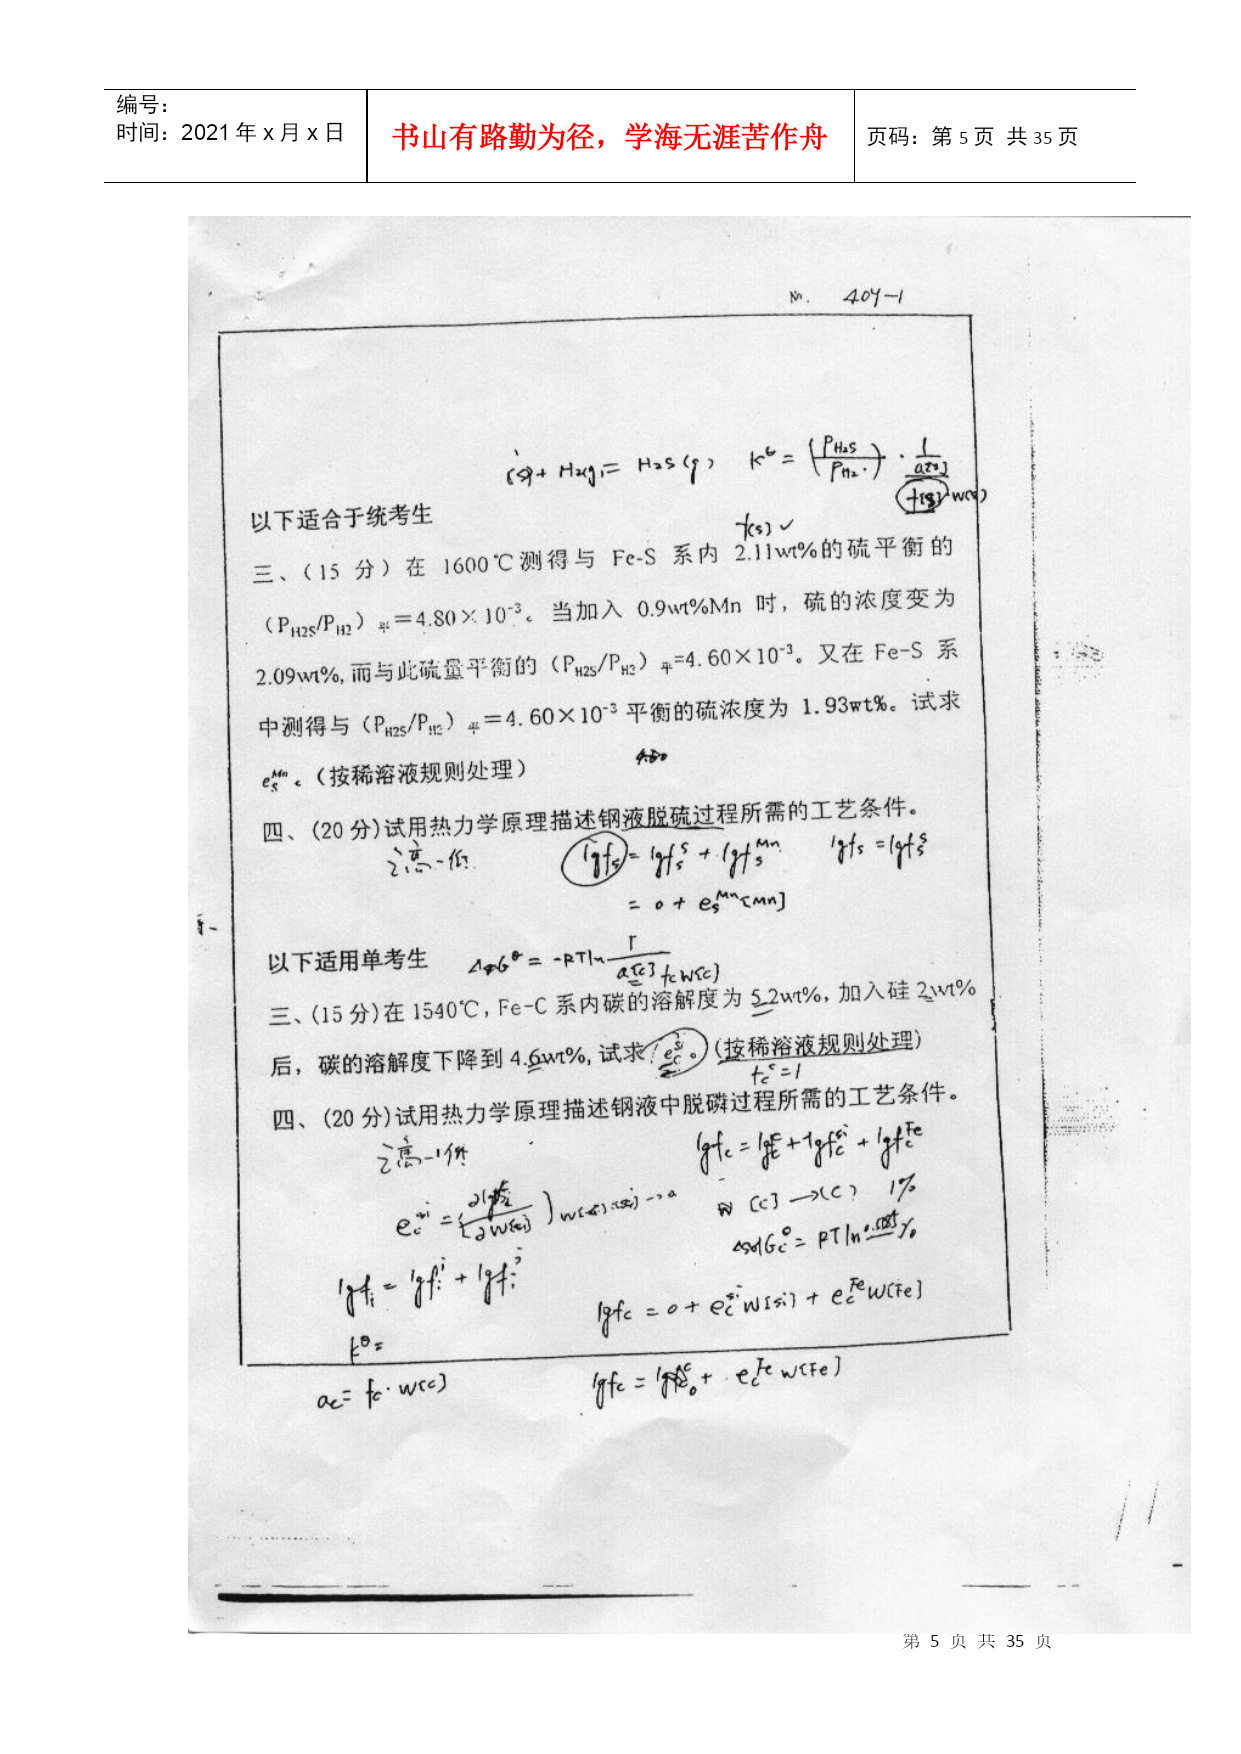 编号：
时间：2021年x月x日
书山有路勤为径，学海无涯苦作舟
页码：第5页 共35页
404-1
[S]+H2(g)=H2S(g) K^θ=(P_H2S/P_H2)·1/a[S]
f[S] w[S]
以下适合于统考生
f[S]✓
三、（15 分）在 1600℃测得与 Fe-S 系内 2.11wt%的硫平衡的
（P_H2S/P_H2）平＝4.80×10⁻³。当加入 0.9wt%Mn 时，硫的浓度变为
2.09wt%,而与此硫量平衡的（P_H2S/P_H2）平=4.60×10⁻³。又在 Fe-S 系
中测得与（P_H2S/P_H2）平＝4.60×10⁻³平衡的硫浓度为 1.93wt%。试求
e_S^Mn。（按稀溶液规则处理）
四、(20 分)试用热力学原理描述钢液脱硫过程所需的工艺条件。
lgf_S=lgf_S^S+lgf_S^Mn lgf_S=lgf_S^S
=0+e_S^Mn[Mn]
以下适用单考生
=-RTln 1/a[C] f_C w[C]
三、(15 分)在 1540℃,Fe-C 系内碳的溶解度为 5.2wt%,加入硅 2wt%
后，碳的溶解度下降到 4.6wt%,试求 e_C^Si。(按稀溶液规则处理)
f_C^C=1
四、(20 分)试用热力学原理描述钢液中脱磷过程所需的工艺条件。
lgf_C=lgf_C^C+lgf_C^Si+lgf_C^Fe
[C]→(C) 1%
lgf_i=lgf_i^i+lgf_i^j
lgf_C=0+e_C^Si w[Si]+e_C^Fe w[Fe]
K^θ=
a_C=f_C·w[C]
e_C^Fe w[Fe]
第 5 页 共 35 页